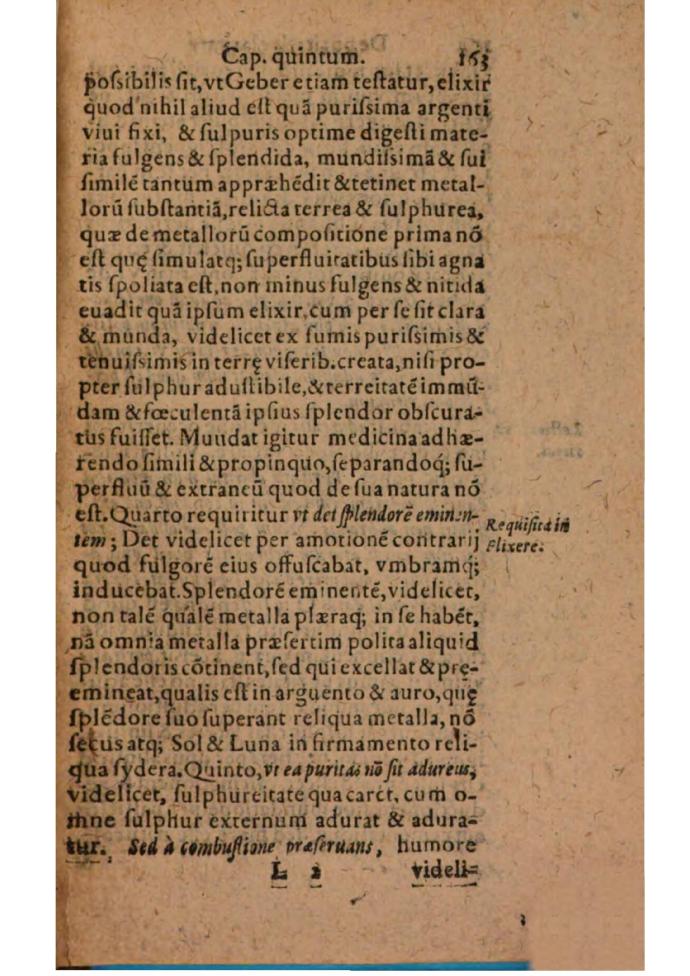 Cap. quintum. 163
poſsibilis ſit, vt Geber etiam teſtatur, elixir
quod nihil aliud eſt quã puriſsima argenti
viui fixi, & ſulpuris optime digeſti mate-
ria fulgens & ſplendida, mundiſsimã & ſui
ſimilé tantum appræhédit & tetinet metal-
lorũ ſubſtantiã, relicta terrea & ſulphurea,
quæ de metallorũ compoſitione prima nõ
eſt quę ſimulatq; ſuperfluitatibus ſibi agna
tis ſpoliata eſt, non minus fulgens & nitida
euadit quã ipſum elixir, cum per ſe ſit clara
& munda, videlicet ex fumis puriſsimis &
tenuiſsimis in terrę viſerib. creata, niſi pro-
pter ſulphur aduſtibile, & terreitaté immũ-
dam & fœculentã ipſius ſplendor obſcura-
tus fuiſſet. Mundat igitur medicina adhæ-
rendo ſimili & propinquo, ſeparandoq́; ſu-
perfluũ & extraneũ quod de ſua natura nõ
eſt. Quarto requiritur vt det ſplendorẽ eminen-
tem; Det videlicet per amotioné contrarij
quod fulgoré eius offuſcabat, vmbramq́;
inducebat. Splendoré eminenté, videlicet,
non talé qualé metalla plæraq; in ſe habét,
nã omnia metalla præſertim polita aliquid
ſplendoris cõtinent, ſed qui excellat & prę-
emineat, qualis eſt in arguento & auro, quę
ſplédore ſuo ſuperant reliqua metalla, nõ
ſecus atq; Sol & Luna in firmamento reli-
qua ſydera. Quinto, vt ea puritas nõ ſit adureus,
videlicet, ſulphureitate qua caret, cum o-
mne ſulphur externum adurat & adura-
tur. Sed à combuſtione præſeruans, humore
L 2 videli-
Requiſita in
Elixere.